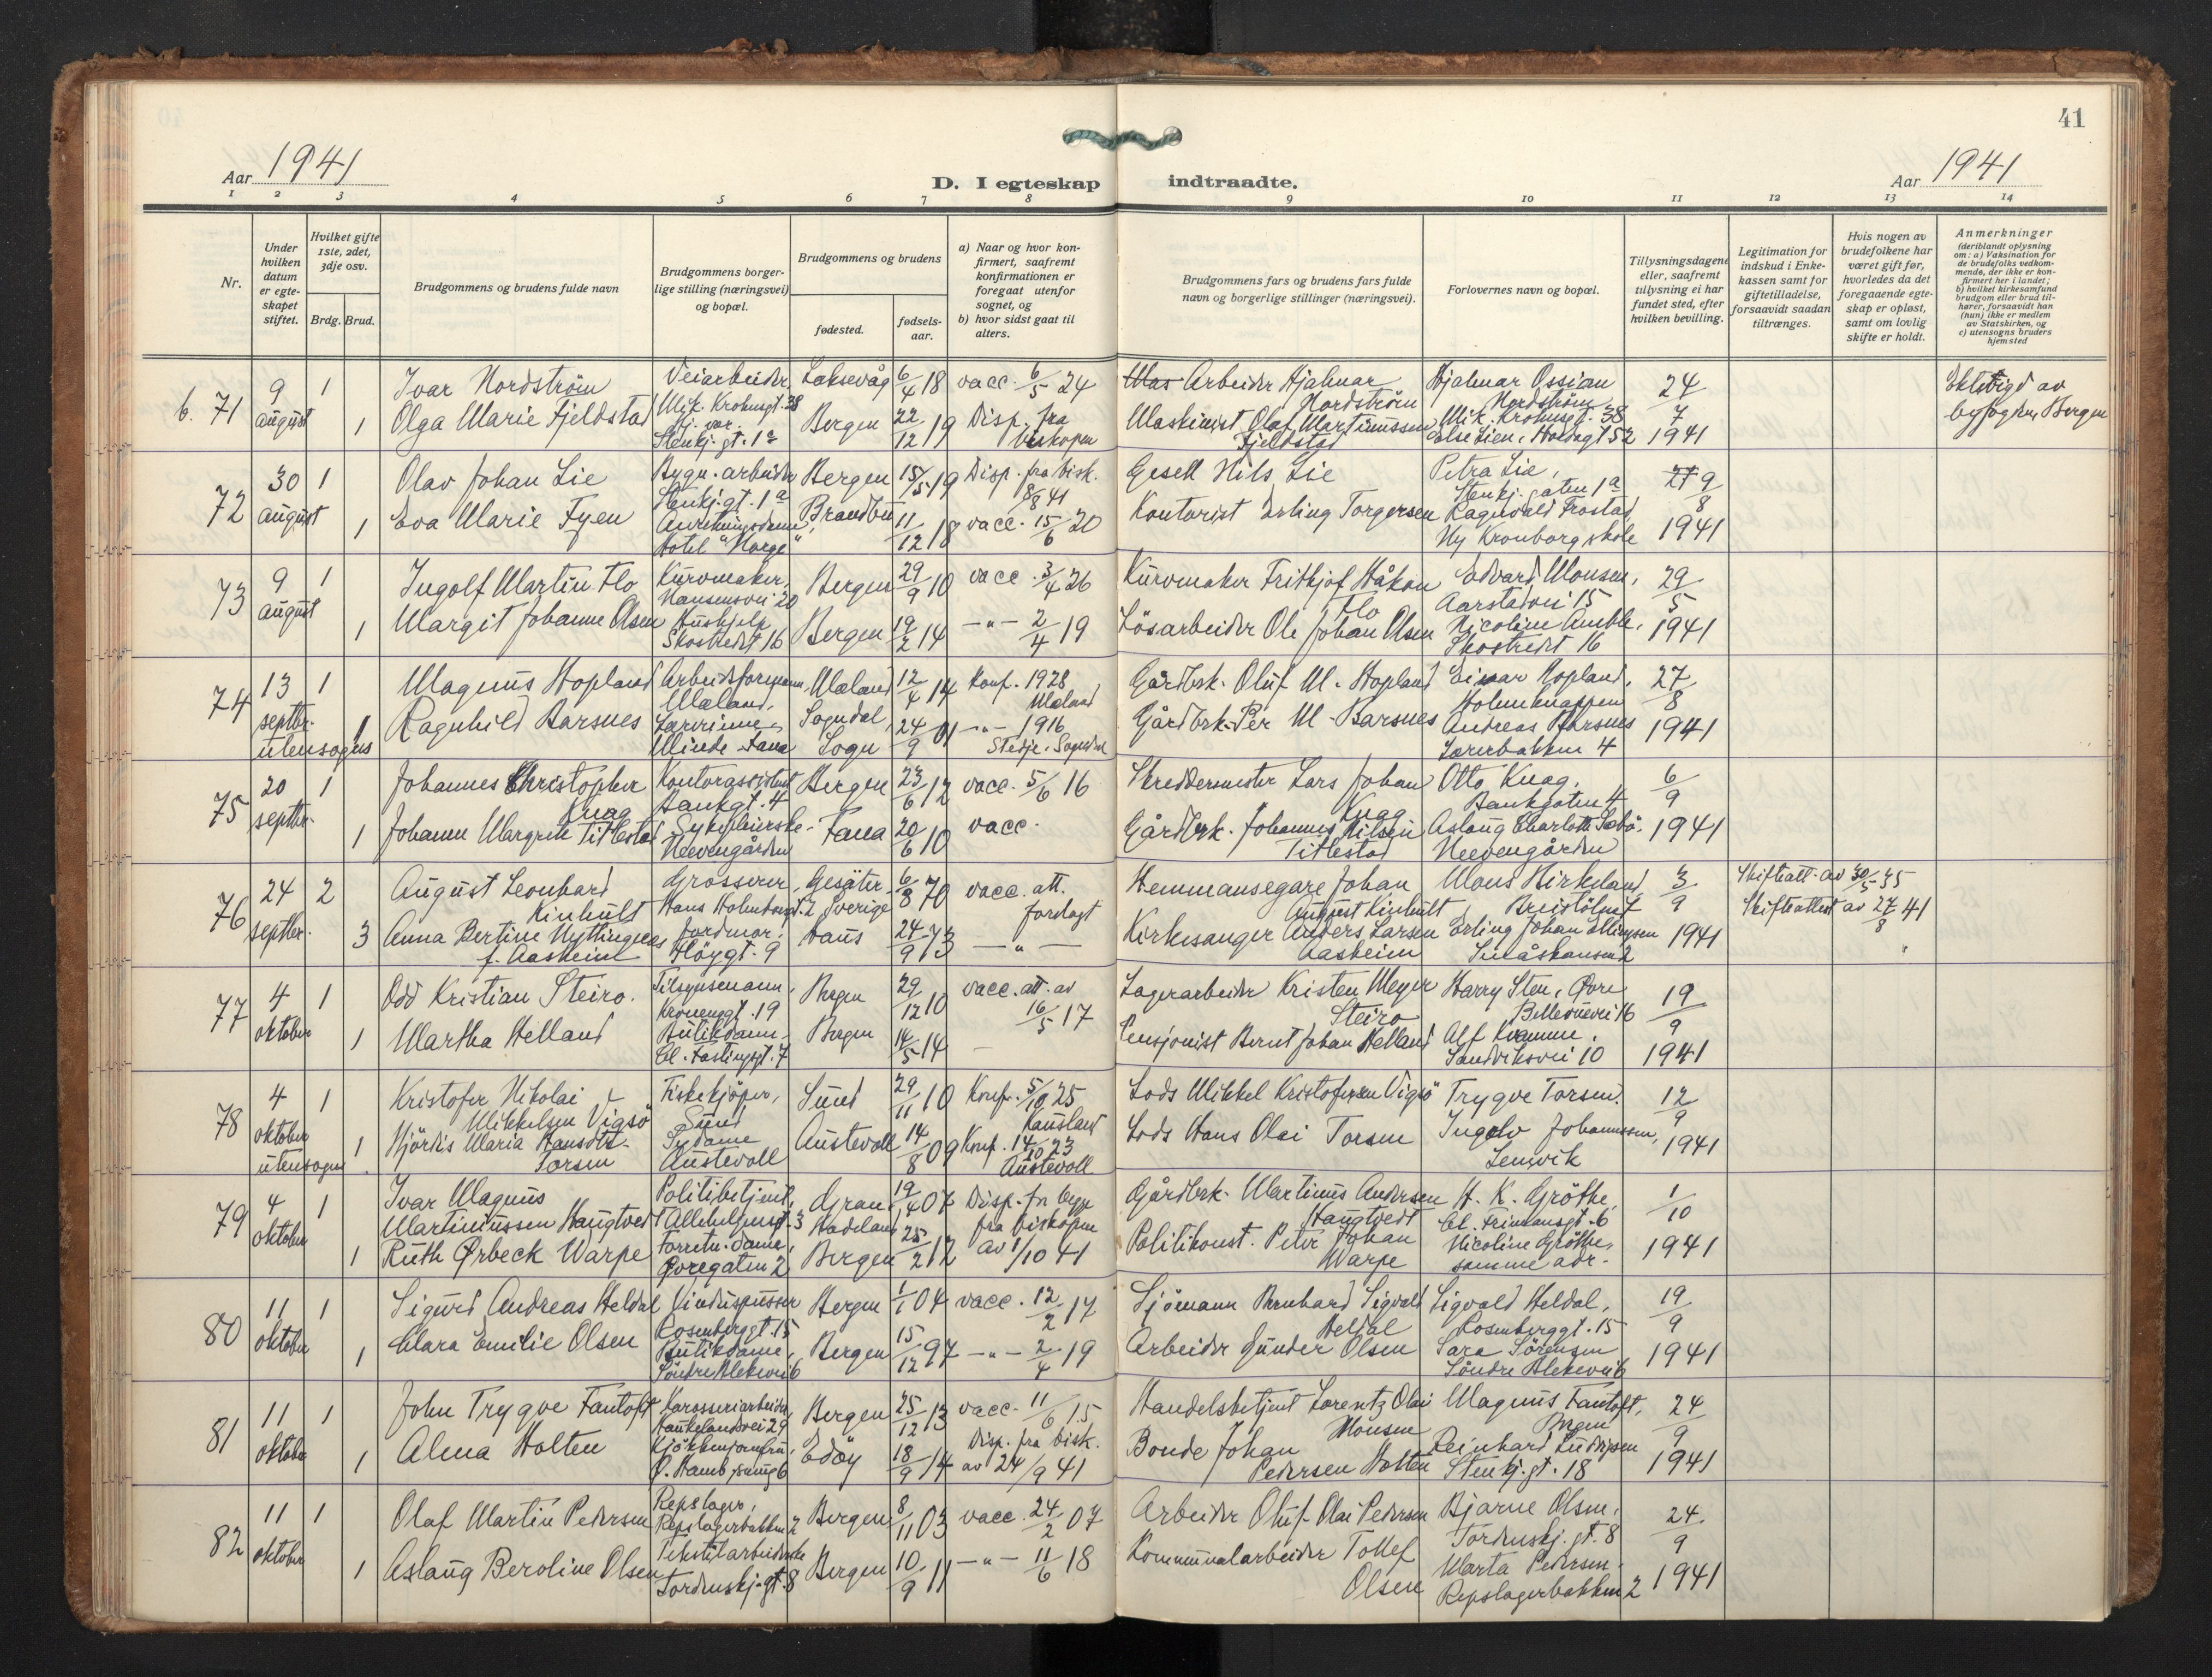 41
Aar 1941
D. I egteskap indtraadte.
Aar 1941
1 2 3 4 5 6 7 8 9 10 11 12 13 14
Nr.
Under hvilken datum er egteskapet stiftet.
Hvilket gifte 1ste, 2det, 3dje osv.
Brdg. Brud.
Brudgommens og brudens fulde navn
Brudgommens borgerlige stilling (næringsvei) og bopæl.
Brudgommens og brudens
fødested.
fødselsaar.
a) Naar og hvor konfirmert, saafremt konfirmationen er foregaat utenfor sognet, og
b) hvor sidst gaat til alters.
Brudgommens fars og brudens fars fulde navn og borgerlige stillinger (næringsvei).
Forlovernes navn og bopæl.
Tillysningsdagene eller, saafremt tillysning ei har fundet sted, efter hvilken bevilling.
Legitimation for indskud i Enkekassen samt for giftetilladelse, forsaavidt saadan tiltrænges.
Hvis nogen av brudefolkene har været gift før, hvorledes da det foregaaende egteskap er opløst, samt om lovlig skifte er holdt.
Anmerkninger (deriblandt oplysning om: a) Vaksination for de brudefolks vedkommende, der ikke er konfirmert her i landet; b) hvilket kirkesamfund brudgom eller brud tilhører, forsaavidt han (hun) ikke er medlem av Statskirken, og c) utensogns bruders hjemsted
b. 71 9 august 1 Ivar Nordström Veiarbeider, Mik. Krohnsgt. 38 Laksevåg 6/4 18 vacc. 6/5 24 Arbeider Hjalmar Nordström Hjalmar Ossian Nordström, Mik. Krohnsgt. 38 24/7 1941 Ektevigd av byfogden, Bergen
1 Olga Marie Fjeldstad Stenkj.gt. 1a Bergen 22/12 19 Disp. fra biskopen Maskinist Olaf Martinussen Fjeldstad Else Lien,
72 30 august 1 Olav Johan Lie Bygn. arbeider Stenkj.gt. 1a Bergen 15/5 19 Disp. fra bisk. 8/8 41 Gesell Nils Lie Petra Lie, Stenkj.gaten 1a 8 1941
1 Eva Marie Fyen Hotel "Norge" 11/12 18 vacc. 15/6 20 Kontorist Erling Torgersen Ragnvald Frostad Ny Kronborg skole
73 9 august 1 Ingolf Martin Flo Kurvmaker, Nansensvei 20 Bergen 29/9 10 vacc. 3/4 26 Kurvmaker Fritjof Håkon Flo Edvard Monsen, Aarstadvei 15 29/5 1941
1 Margit Johanne Olsen Hushjelp Skostredet 16 Bergen 19/2 14 -"- 2/4 19 Lösarbeider Ole Johan Olsen Nicoline Amble, Skostredet 16
74 13 septbr. utensogns 1 Magnus Hopland Arbeidsformann, Mæland 12/4 14 Konf. 1928 Gårdbrk. Oluf M. Hopland Einar Hopland, Holmeknappen 27/8 1941
1 Ragnhild Barsnes Lærerinne, Minde Fana Sogndal, Sogn 24/9 01 -"- 1916 Stedje, Sogndal Gårdbrk. Per M. Barsnes Andreas Barsnes 4
75 20 septbr. 1 Johannes Christopher Knag Kontorassistent Bankgt. 4 Bergen 23/6 12 vacc. 5/6 16 Skreddermester Lars Johan Knag Otto Knag, Bankgaten 4 6/9 1941
1 Johanne Margrete Titlestad Sykepleierske Neevengården Fana 20/6 10 vacc. Gårdbrk. Johannes Nilsen Titlestad Aslaug Charlotte Sæbö, Neevengården
76 24 septbr. 2 August Leonhard Kinhult Grosserer, Hans Holmboesgt. 2 Gesäter, Sverige 6/8 70 vacc. att. fordagt Hemmansegare Johan August Kinhult Mons Birkeland 3/9 1941 Skifteatt. av 30/5 35
3 Anna Bertine Nyttingnes f. Aasheim Jordmor, Höygt. 9 24/9 73 -"- Kirkesanger Anders Larsen Aasheim Erling Johan Ellingsen 2 Skifteattest av 27/8 41
77 4 oktober 1 Odd Kristian Steiro. Tilsynsmann, Kronengt. 19 Bergen 29/12 10 vacc. att. av 16/5 17 Lagerarbeider Kristen Meyer Steiro Harry Sten, Øvre Bellevuevei 16 19/9 1941
1 Martha Helland Butikdame Cl. Fastingsgt. 7 Bergen 14/5 14 - Pensjonist Bernt Johan Helland Alf Kvamme, Sandviksvei 10
78 4 oktober utensogns 1 Kristofer Nikolai Mikkelsen Vigsö Fiskekjöper, Sund Sund 29/11 10 Konf. 5/10 25 Lods Mikkel Kristofersen Vigsö Trygve Torsen. 12/9 1941
1 Hjördis Maria Hansdtr. Torsen Sydame Austevoll Austevoll 14/8 09 Konf. 14/10 23 Austevoll Lods Hans Olai Torsen Ingolv Johannessen,
79 4 oktober 1 Ivar Magnus Martinussen Haugtvedt Politibetjent, Allehelgensgt. 3 Gran, Hadeland 19/4 07 Disp. for begge fra biskopen av 1/10 41 Gårdbrk. Martinus Andersen Haugtvedt H. K. Gröthe, Cl. Frimansgt. 6 1/10 1941
1 Ruth Ørbeck Warpe Forretn. dame, Øvregaten 2 Bergen 25/2 12 Politikonst. Peter Johan Warpe Nicoline Gröthe, samme adr.
80 11 oktober 1 Sigurd Andreas Heldal Vinduspusser Rosenberggt. 15 Bergen 1/1 04 vacc. 12/2 17 Sjömann Bernhard Sigvald Heldal Sigvald Heldal, Rosenberggt. 15 19/9 1941
1 Clara Emilie Olsen Butikdame, Söndre Blekevei 6 Bergen 15/12 97 -"- 2/4 19 Arbeider Gunder Olsen Sara Sörensen Söndre Blekevei 6
81 11 oktober 1 John Trygve Fantoft Karosseriarbeider, Haukelandsvei 29 Bergen 25/12 13 vacc. 11/6 15 Handelsbetjent Lorentz Olai Monsen Magnus Fantoft, Bergen 24/9 1941
1 Alma Holten Kjökkenjomfru, Edöy 18/9 14 Disp. fra bisk. av 24/9 41 Bonde Johan Pedersen Holten Reinhard Ludvigsen Stenkj.gt. 18
82 11 oktober 1 Olaf Martin Pedersen Repslager, Repslagerbakken 2 Bergen 8/11 03 vacc. 24/2 07 Arbeider Oluf Olai Pedersen Bjarne Olsen, Tordenskj.gt. 8 24/9 1941
1 Aslaug Beroline Olsen Tekstilarbeiderske Tordenskj.gt. 8 Bergen 10/9 11 -"- 11/6 18 Kommunalarbeider Tollef Olsen Marta Pedersen Repslagerbakken 2